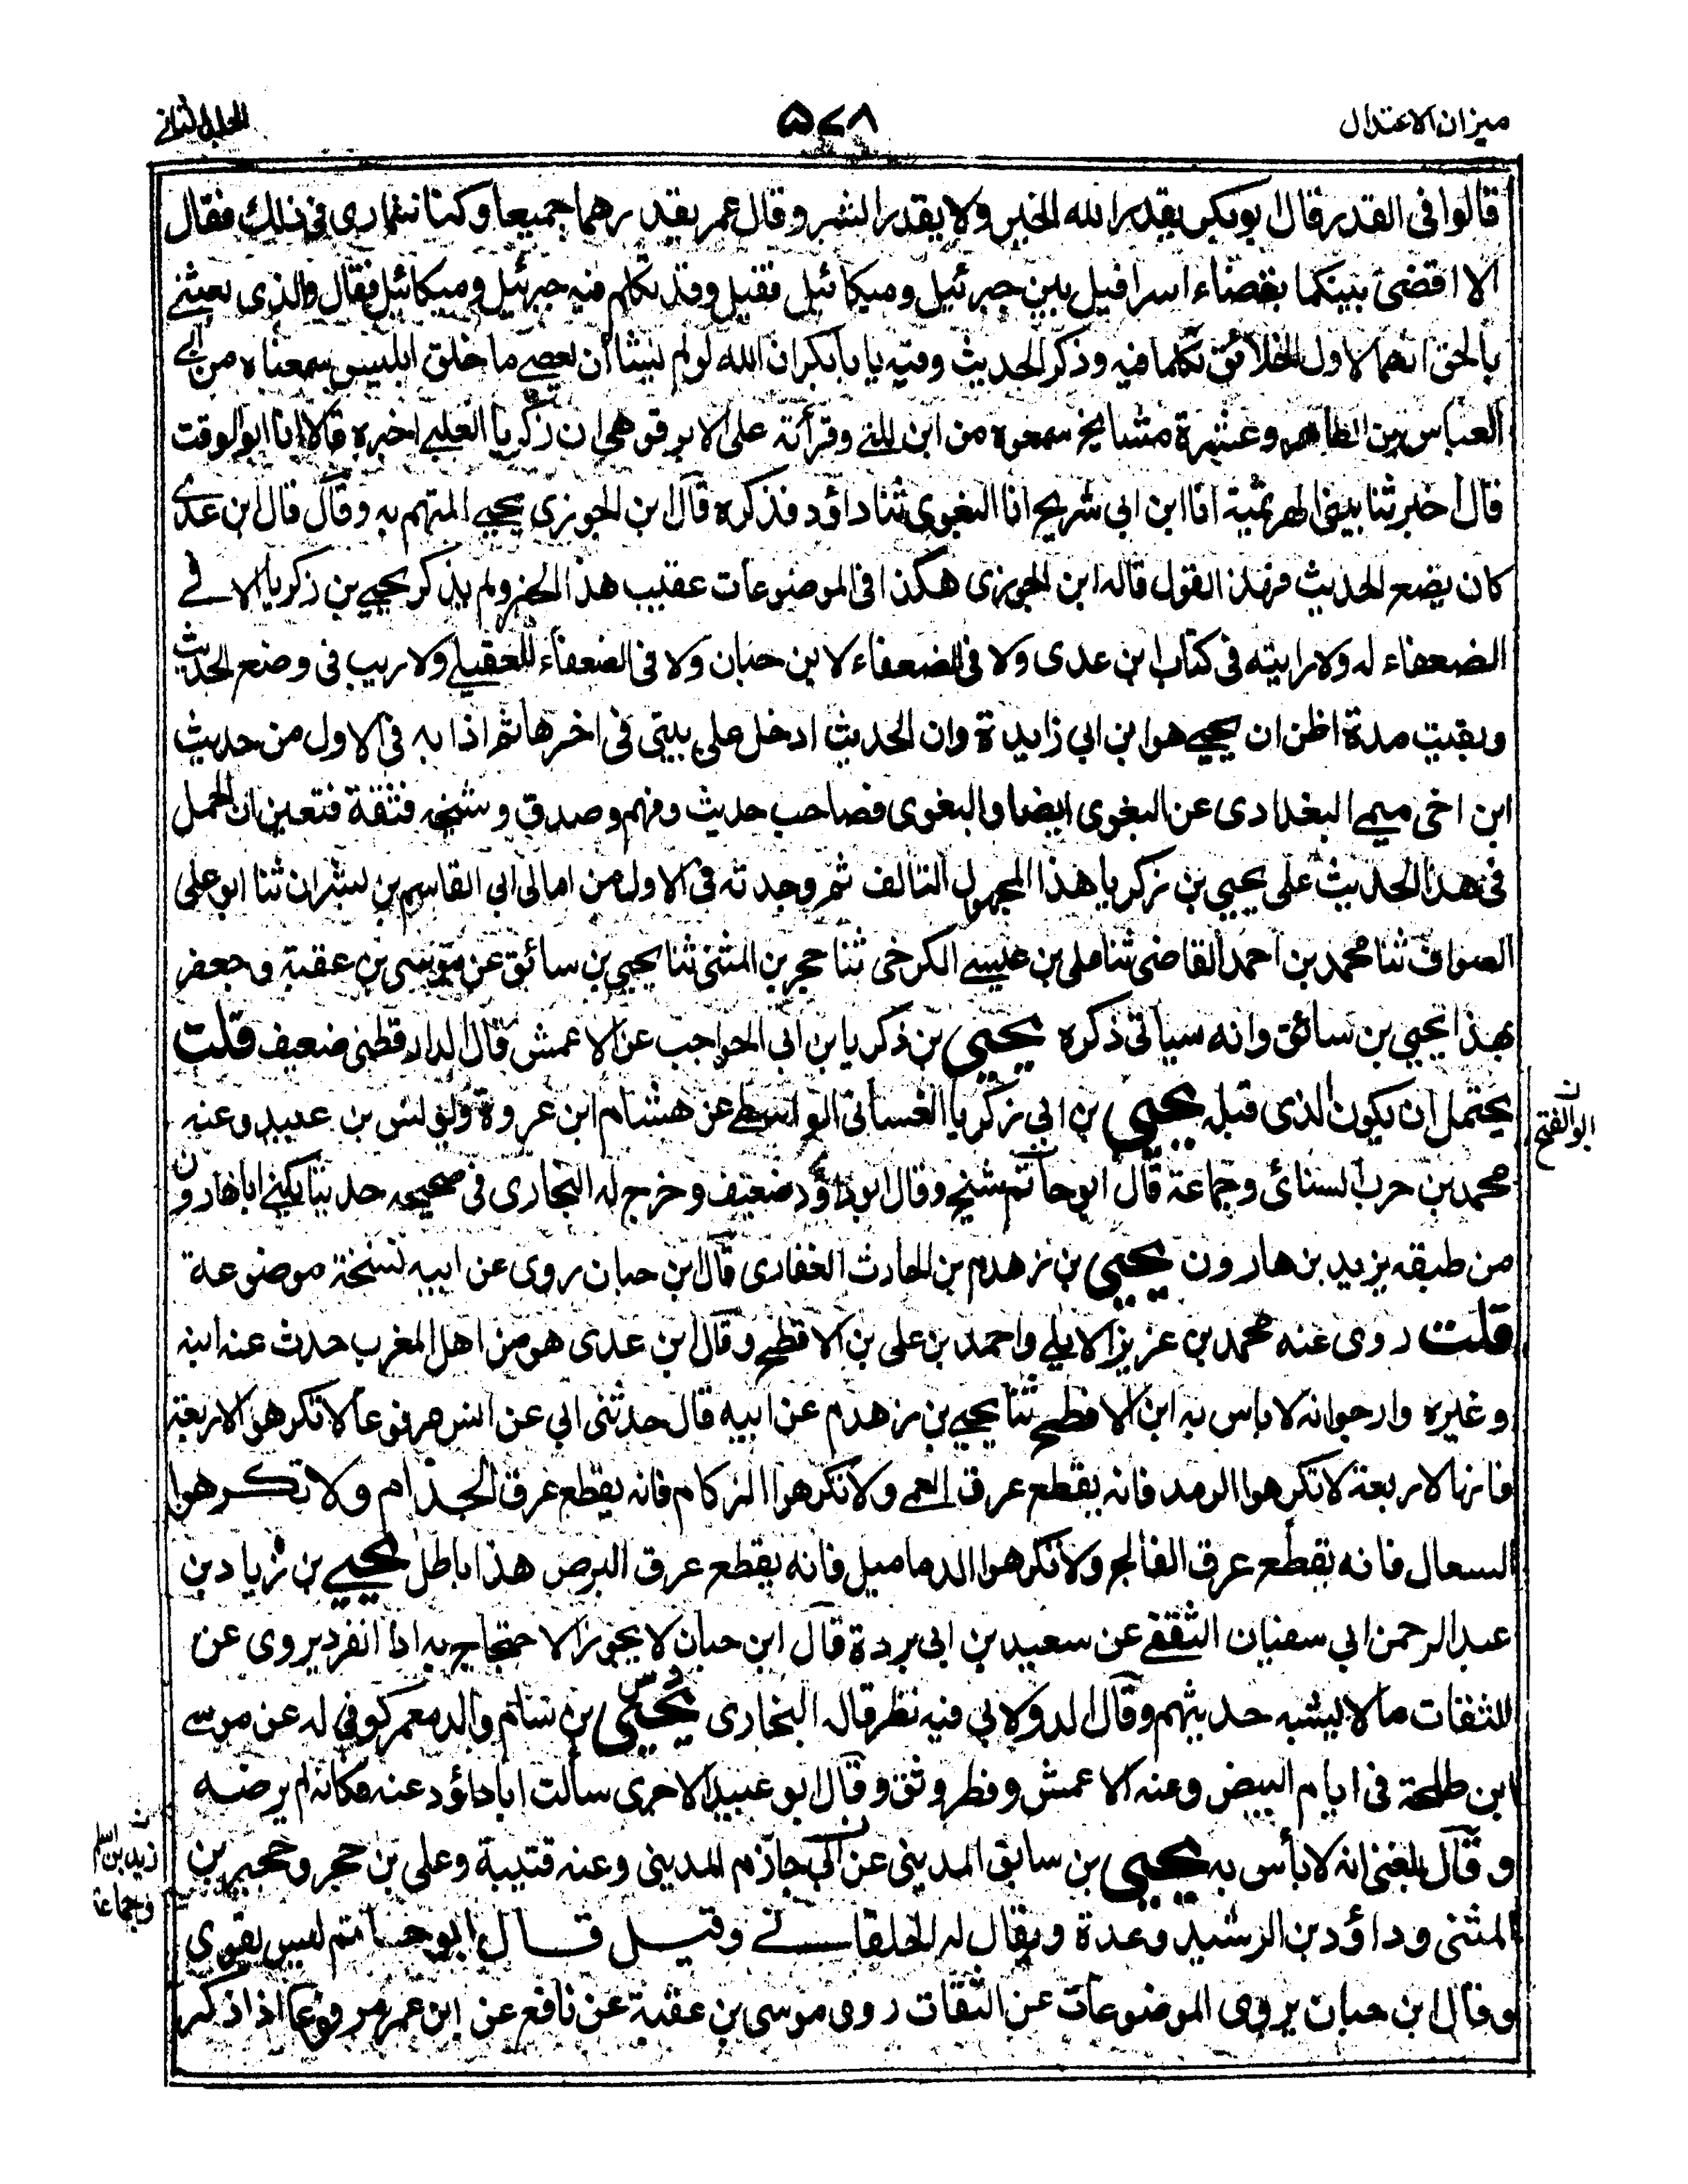 ميزان الاعتدال
۵۷۸
المجلد الثاني
قالوا فى القدر قال ابو بكر يقدر الله الخير ولا يقدر الشر وقال عمر يقدرهما جميعا وكنا نتمارى فى ذلك فقال
الا اقضى بينكما بقضاء اسرافيل بين جبرئيل وميكائيل فقيل وقد تكلم فيه جبرئيل وميكائيل فقال والذى بعثنى
بالحق انهما لاول الخلائق تكلما فيه وذكر الحديث وفيه يا با بكر ان الله لو لم يشأ ان يعصى ما خلق ابليس سمعناه من ابى
العباس بن الظاهرى وعشرة مشايخ سمعوه من ابن اللتى وقرأته على الابرقوهى ان زكريا العلبى اخبره قالا انا ابو الوقت
قال اخبرتنا بيبى الهرثمية انا ابن ابى شريح انا البغوى ثنا داؤد فذكره قال ابن الجوزى يحيى المتهم به وقال قال ابن عدى
كان يضع الحديث فهذا القول قاله ابن الجوزى هكذا فى الموضوعات عقيب هذا الخبر ولم يذكر يحيى بن زكريا الا فى
الضعفاء له ولا رايته فى كتاب ابن عدى ولا فى الضعفاء لابن حبان ولا فى الضعفاء للعقيلى ولا ريب فى وضع الحديث
وبقيت مدة اظن ان يحيى هو ابن ابى زايدة وان الحديث ادخل على بيبى فى اخرها ثم اذا به فى الاول من حديث
ابن اخى ميمى البغدادى عن البغوى ايضا والبغوى فصاحب حديث وفهم وصدق وشيخه فثقة فتعين ان الحمل
فى هذا الحديث على يحيى بن زكريا هذا المجهول التالف ثم وجدته فى الاول من امالى ابى القاسم بن بشران ثنا ابو على
الصواف ثنا محمد بن احمد القاضى ثنا على بن عيسى الكرخى ثنا حجر بن المثنى ثنا يحيى بن سائق عن موسى بن عقبة وجعفر
بهذا يحيى بن سائق وانه سياتى ذكره يحيى بن زكريا بن ابى الحواجب عن الاعمش قال الدارقطنى ضعيف قلت
يحتمل ان يكون الذى قبله يحيى بن ابى زكريا الغسانى الواسطى عن هشام ابن عروة ويونس بن عبيد وعنه
محمد بن حرب النسائى وجماعة قال ابو حاتم شيخ وقال ابو داؤد ضعيف وخرج له البخارى فى صحيحه حديثا يكنى ابا هارون
ابو الفتح
من طبقه يزيد بن هارون يحيى بن زهدم بن الحارث الغفارى قال ابن حبان روى عن ابيه نسخة موضوعة
قلت روى عنه محمد بن عزيز الايلى واحمد بن على بن الافطح وقال ابن عدى هو من اهل المغرب حدث عنه ابنه
وغيره وارجو انه لا باس به ابن الافطح ثنا يحيى بن زهدم عن ابيه قال حدثنى ابي عن انس مرفوعا لا تكرهوا اربعة
فانها لاربعة لا تكرهوا الرمد فانه يقطع عرق العمى ولا تكرهوا الزكام فانه يقطع عرق الجذام ولا تكرهوا
السعال فانه يقطع عرق الفالج ولا تكرهوا الدماميل فانه يقطع عرق البرص هذا باطل يحيى بن زياد بن
عبد الرحمن ابي سفيان الثقفى عن سعيد بن ابى بردة قال ابن حبان لا يجوز الاحتجاج به اذا انفرد يروى عن
الثقات ما لا يشبه حديثهم وقال الدولابي فيه نظر قاله البخارى يحيى بن سام والد معمر كوفى له عن موسى
ابن طلحة فى ايام البيض وعنه الاعمش وفطر وثق وقال ابو عبيد الاجرى سالت ابا داؤد عنه فكانه لم يرضه
وقال بلغنى انه لا بأس به يحيى بن سابق المدينى عن ابى حازم المدينى وعنه قتيبة وعلى بن حجر وحجير بن
زيد بن اسلم وجماعة
المثنى وداؤد بن الرشيد وعدة ويقال له الخلقانى وقيل قال ابو حاتم ليس بقوى
وقال ابن حبان يروى الموضوعات عن الثقات روى موسى بن عقبة عن نافع عن ابن عمر مرفوعا اذا ذكر